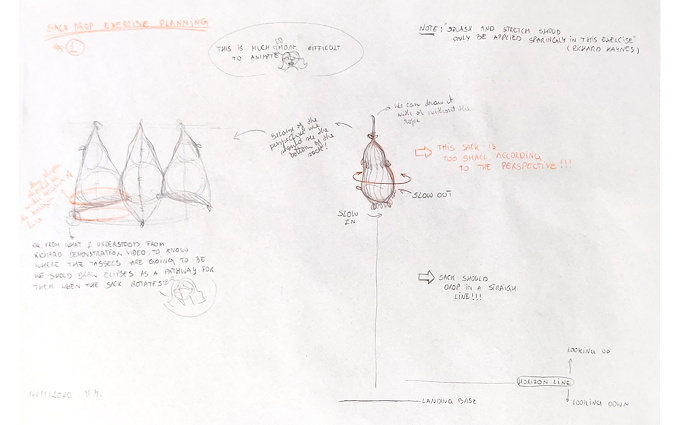 SACK DROP EXERCISE PLANNING
1
THIS IS MUCH MORE DIFFICULT
TO ANIMATE
NOTE: "SQUASH AND STRETCH SHOULD
ONLY BE APPLIED SPARINGLY IN THIS EXERCISE"
(RICHARD HAYNES)
We can draw it
with or without the
rope
Because of the
perspective we
should see the
bottom of the
sack!
THIS SACK IS
TOO SMALL ACCORDING
TO THE PERSPECTIVE!!!
SLOW OUT
SLOW
IN
OR, FROM WHAT I UNDERSTOOD FROM
RICHARD DEMONSTRATION VIDEO, TO KNOW
WHERE THE TASSELS ARE GOING TO BE
WE SHOULD DRAW ELIPSES AS A PATHWAY FOR
THEM WHEN THE SACK ROTATES
SACK SHOULD
DROP IN A STRAIGH
LINE!!!
LOOKING UP
HORIZON LINE
LOOKING DOWN
LANDING BASE